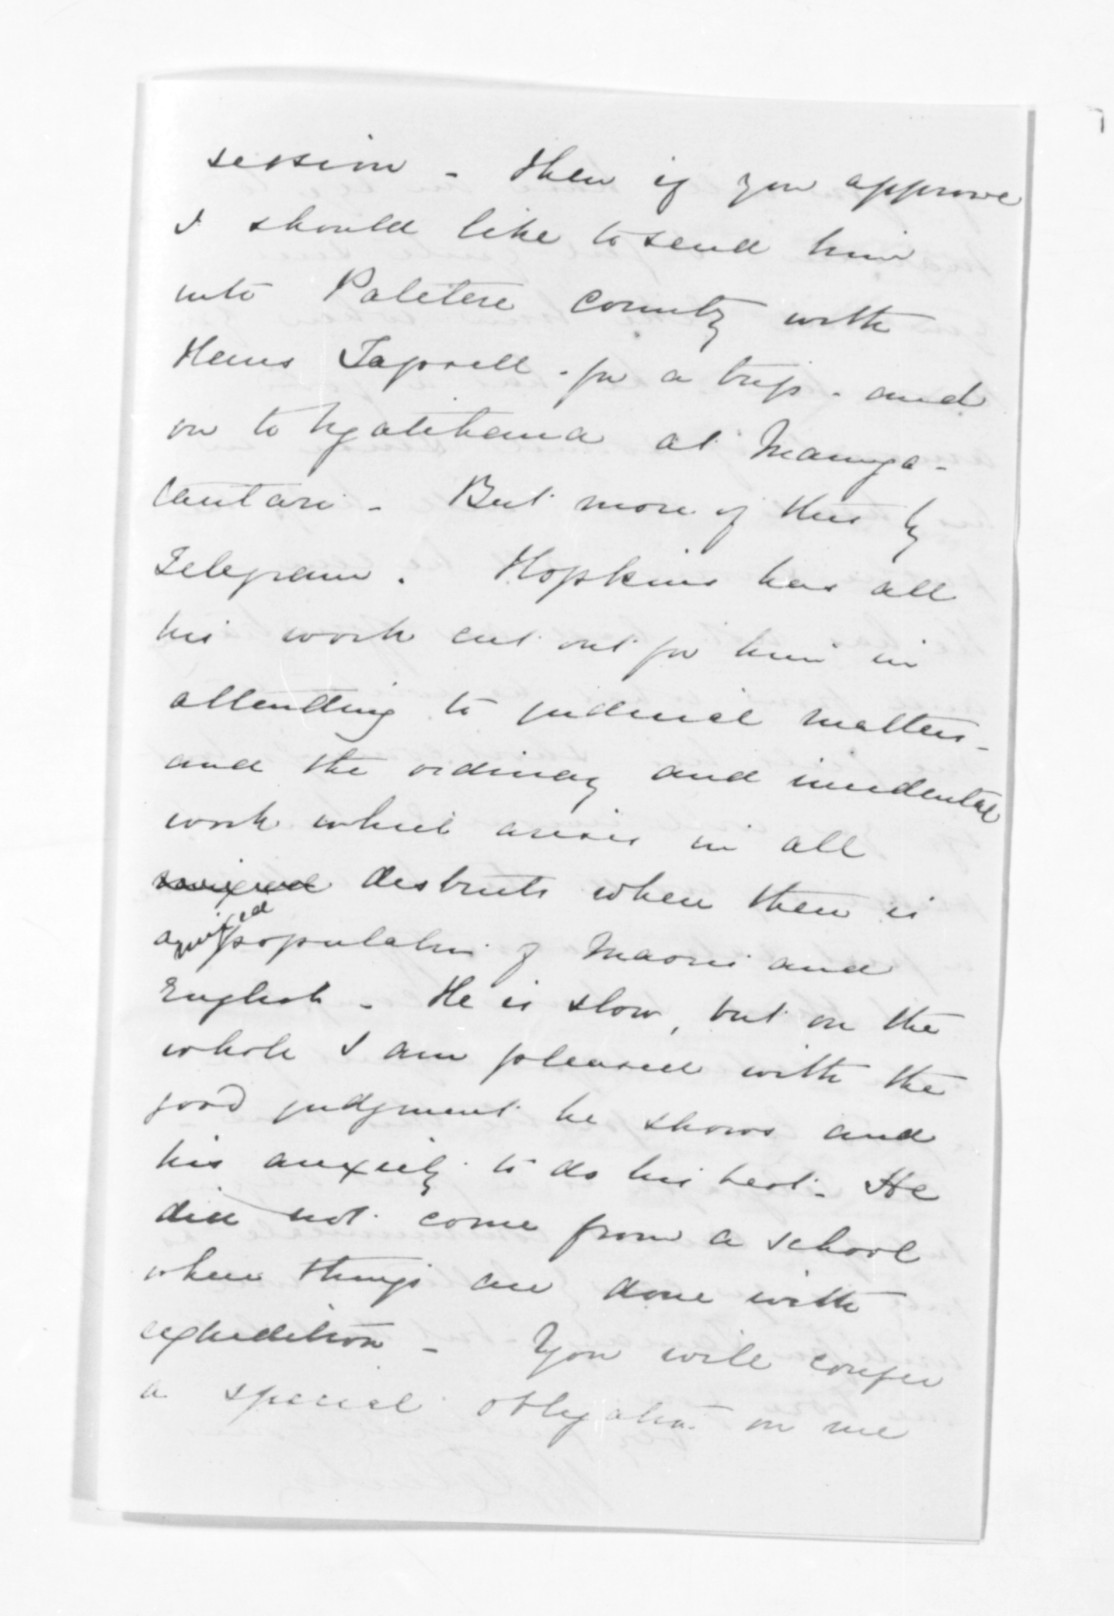 session - then if you approve
I should like to send him
into Patetere county with
Hans Tapsell - for a trip - and
on to Ngatihaua at Maunga-
cautari - But more of this by
Telegram. Hopkins has all
his work cut out for him in
attending to judicial matters -
and the ordinary and incidental
work which arises in all
mixed districts when there is
a mixed population of Maoris and
English - He is slow, but on the
whole I am pleased with the
good judgment he shows and
his anxiety to do his best - He
did not come from a school
where things are done with
expedition - You will confer
a special obligation on me